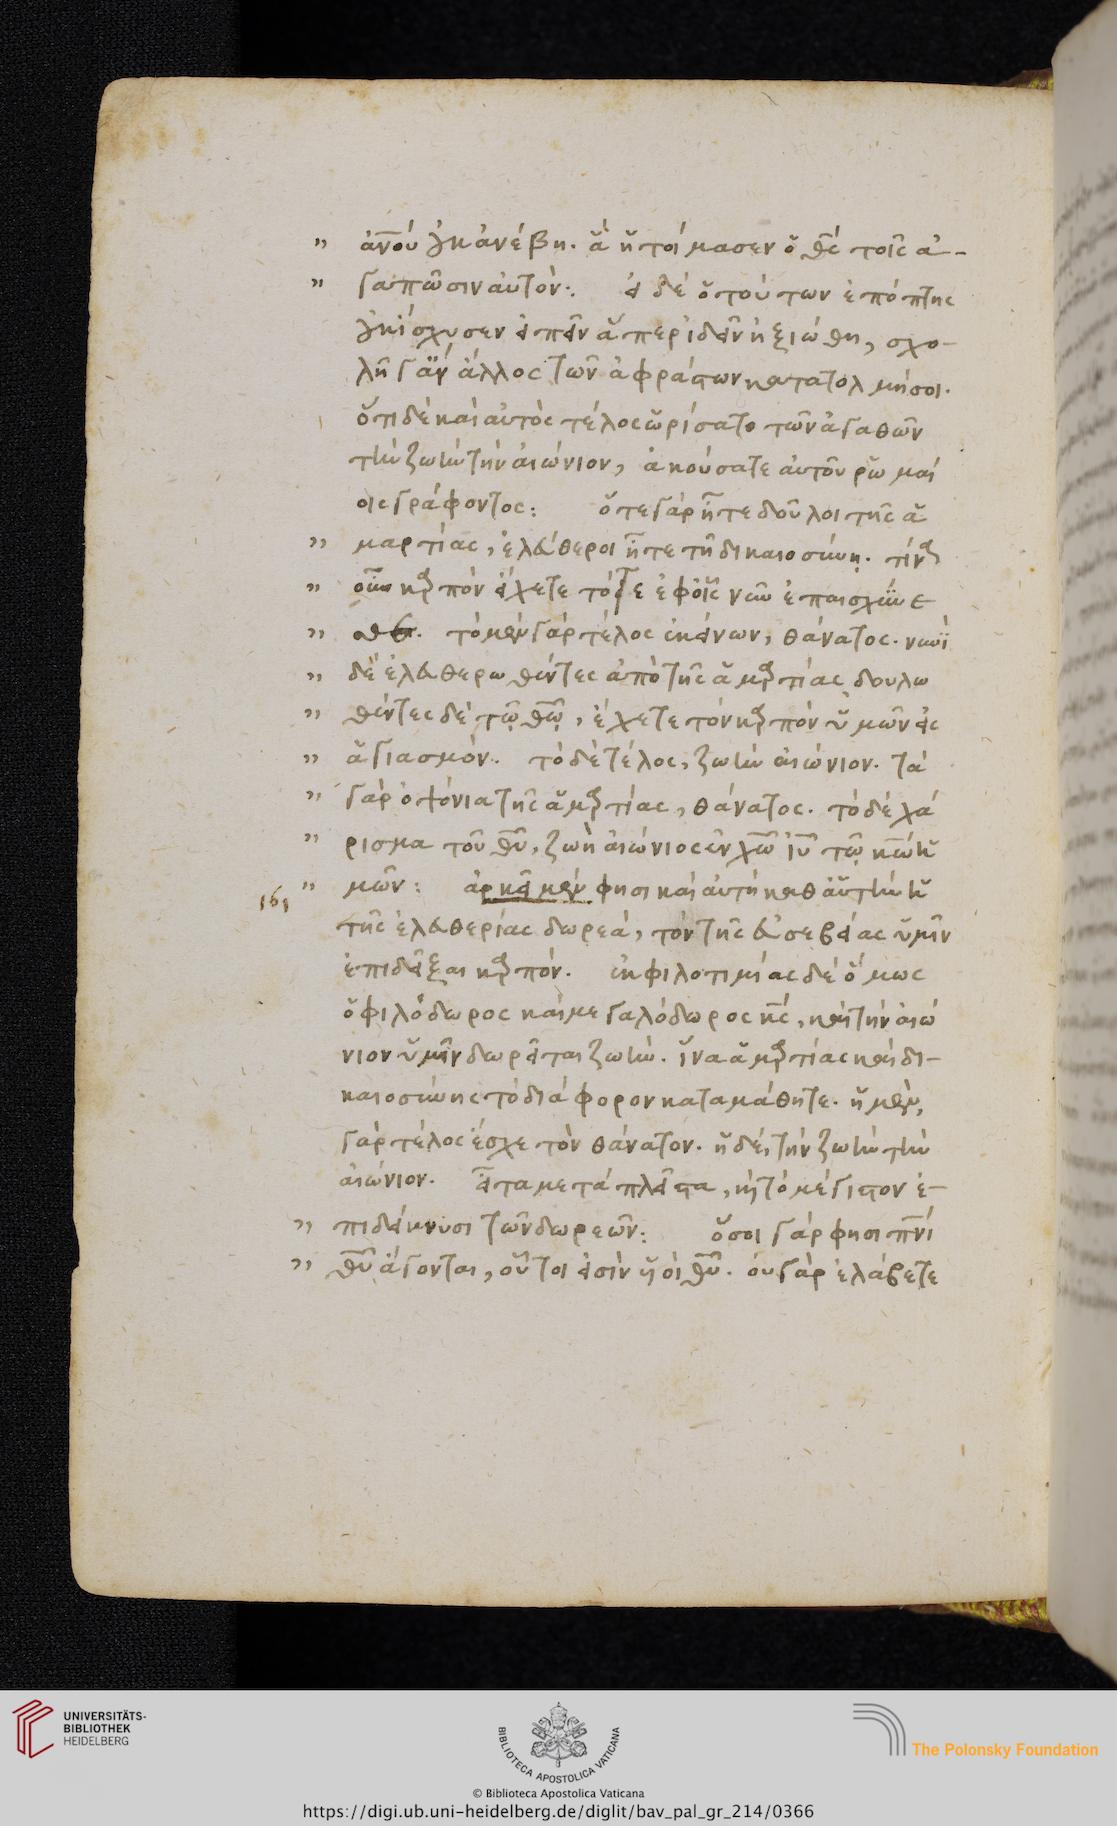 " ἀν̅ου οὐκ ἀνέβη. ἃ ἡτοίμασεν ὁ θ̅ς τοῖς ἀ-
" γαπῶσιν αὐτόν: εἰ δὲ ὁ τούτων ἐπόπτης
οὐκ ἴσχυσεν εἰπεῖν ἅπερ ἰδεῖν ἠξιώθη, σχο-
λῆ γ᾽ ἂν ἄλλος τῶν ἀφράστων κατατολμήσοι.
ὅτι δὲ καὶ αὐτὸς τέλος ὡρίσατο τῶν ἀγαθῶν
τὴν ζωὴν τὴν αἰώνιον, ἀκούσατε αὐτοῦ ῥωμαί
οις γράφοντος: ὅτε γὰρ ἦτε δοῦλοι τῆς ἁ
" μαρτίας, ἐλεύθεροι ἦτε τῆ δικαιοσύνη. τίνα
" οὖν καρπὸν εἴχετε τότε ἐφ᾽ οἷς νῦν ἐπαισχύνε
" σθε. τὸ μὲν γὰρ τέλος ἐκείνων, θάνατος. νυνὶ
" δὲ ἐλευθερωθέντες ἀπὸ τῆς ἁμαρτίας δουλω
" θέντες δὲ τῷ θ̅ῷ, ἔχετε τὸν καρπὸν ὑμῶν εἰς
" ἁγιασμόν. τὸ δὲ τέλος, ζωὴν αἰώνιον. τὰ
" γὰρ ὀψόνια τῆς ἁμαρτίας, θάνατος. τὸ δὲ χά
" ρισμα τοῦ θ̅υ, ζωὴ αἰώνιος ἐν χ̅ω ἰ̅υ τῷ κ̅ω ἡ
161 " μῶν: ἀρκεῖ μὲν φησι καὶ αὐτὴ καθ᾽ αὑτὴν ἡ
τῆς ἐλευθερίας δωρεά, τὸν τῆς εὐσεβείας ὑμῖν
ἐπιδεῖξαι καρπόν. ἐκ φιλοτιμίας δὲ ὅμως
ὁ φιλόδωρος καὶ μεγαλόδωρος κ̅ς, καὶ τὴν αἰώ
νιον ὑμῖν δωρεῖται ζωήν. ἵνα ἁμαρτίας καὶ δι-
καιοσύνης τὸ διάφορον καταμάθητε. ἡ μὲν
γὰρ τέλος ἔσχε τὸν θάνατον. ἡ δέ, τὴν ζωὴν τὴν
αἰώνιον. εἶτα μετὰ πλεῖστα, καὶ τὸ μέγιστον ἐ-
" πιδείκνυσι τῶν δωρεῶν: ὅσοι γὰρ φησι π̅νι
" θ̅υ ἄγονται, οὗτοι εἰσὶν υἱοὶ θ̅υ. οὐ γὰρ ἐλάβετε
UNIVERSITÄTS-
BIBLIOTHEK
HEIDELBERG
BIBLIOTECA APOSTOLICA VATICANA
The Polonsky Foundation
© Biblioteca Apostolica Vaticana
https://digi.ub.uni-heidelberg.de/diglit/bav_pal_gr_214/0366